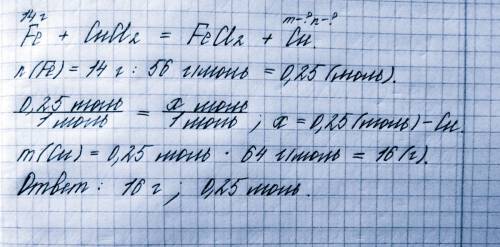 14 г m-? n-?
Fe + CuCl₂ = FeCl₂ + Cu.
n(Fe) = 14 г : 56 г/моль = 0,25 (моль).
0,25 моль / 1 моль = x моль / 1 моль ; x = 0,25 (моль) - Cu.
m(Cu) = 0,25 моль · 64 г/моль = 16 (г).
Ответ : 16 г ; 0,25 моль.